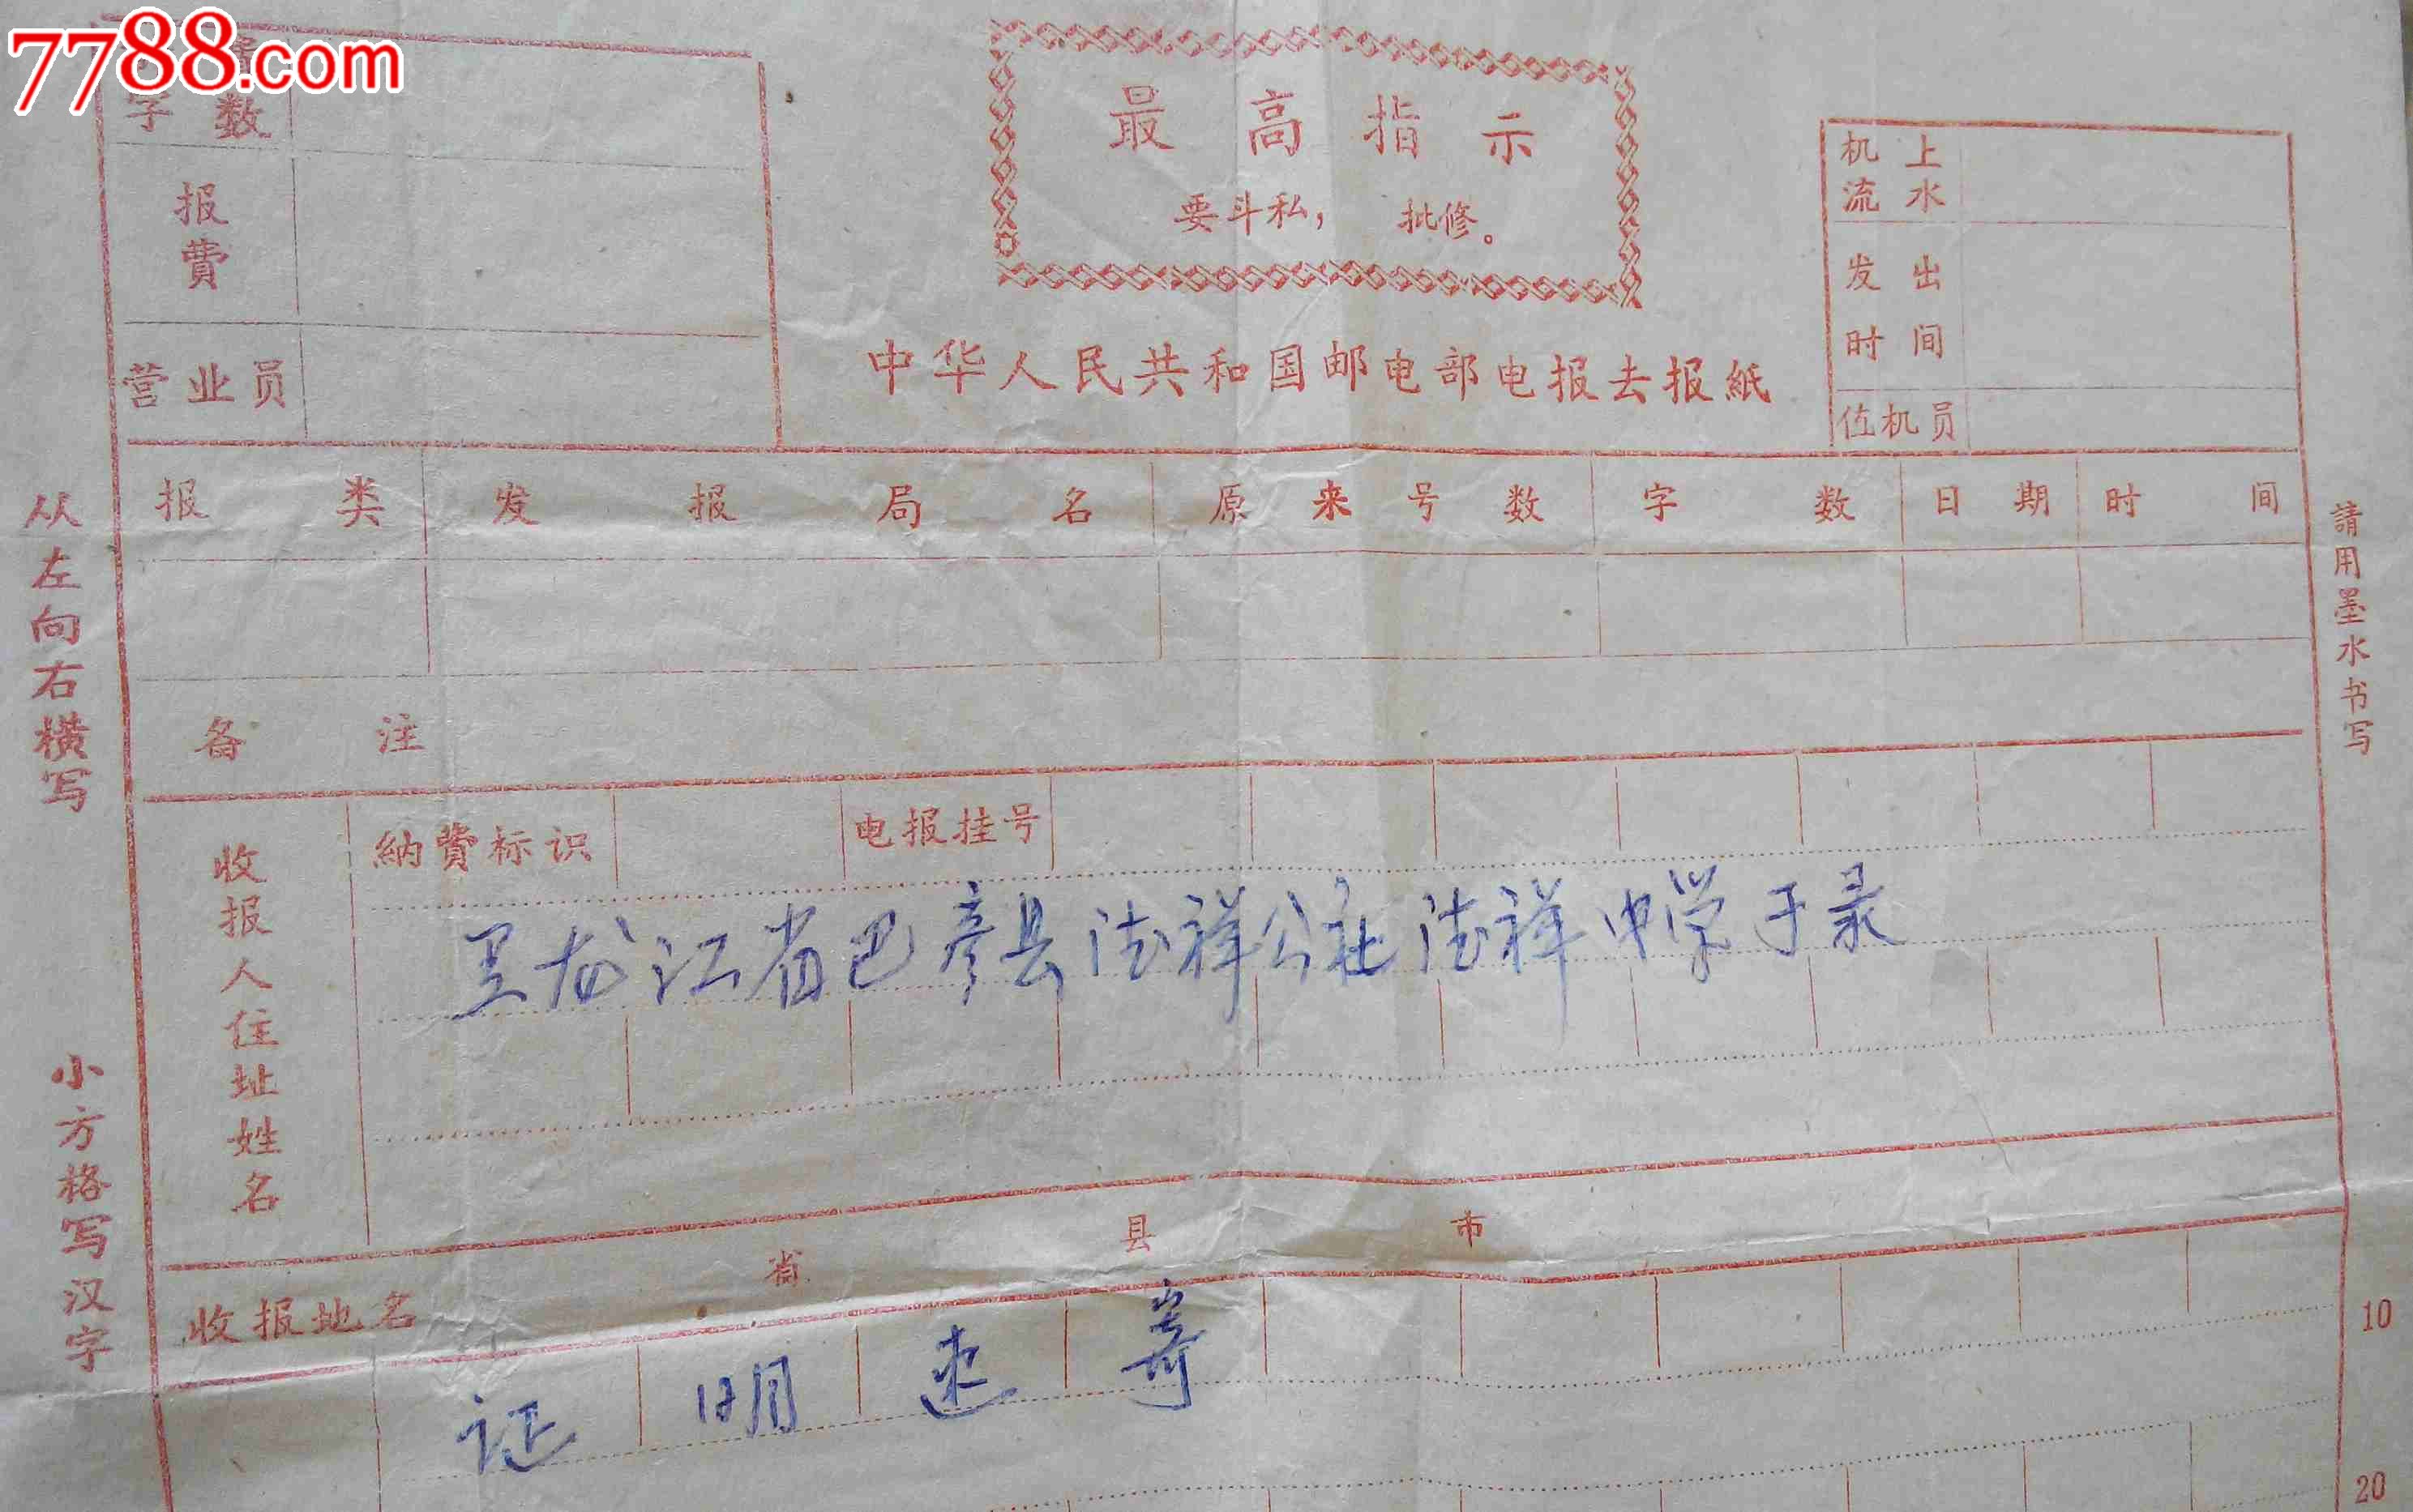 7788.com
字数
报費
营业员
最高指示
要斗私，批修。
中华人民共和国邮电部电报去报紙
机上流水
发出时间
值机员
报类 发报局名 原来号数 字数 日期 时间
备注
从左向右横写
小方格写汉字
請用墨水书写
納費标识 电报挂号
收报人住址姓名
黑龙江省巴彦县德祥公社德祥中学于录
收报地名 省 县 市
证明速寄
10
20